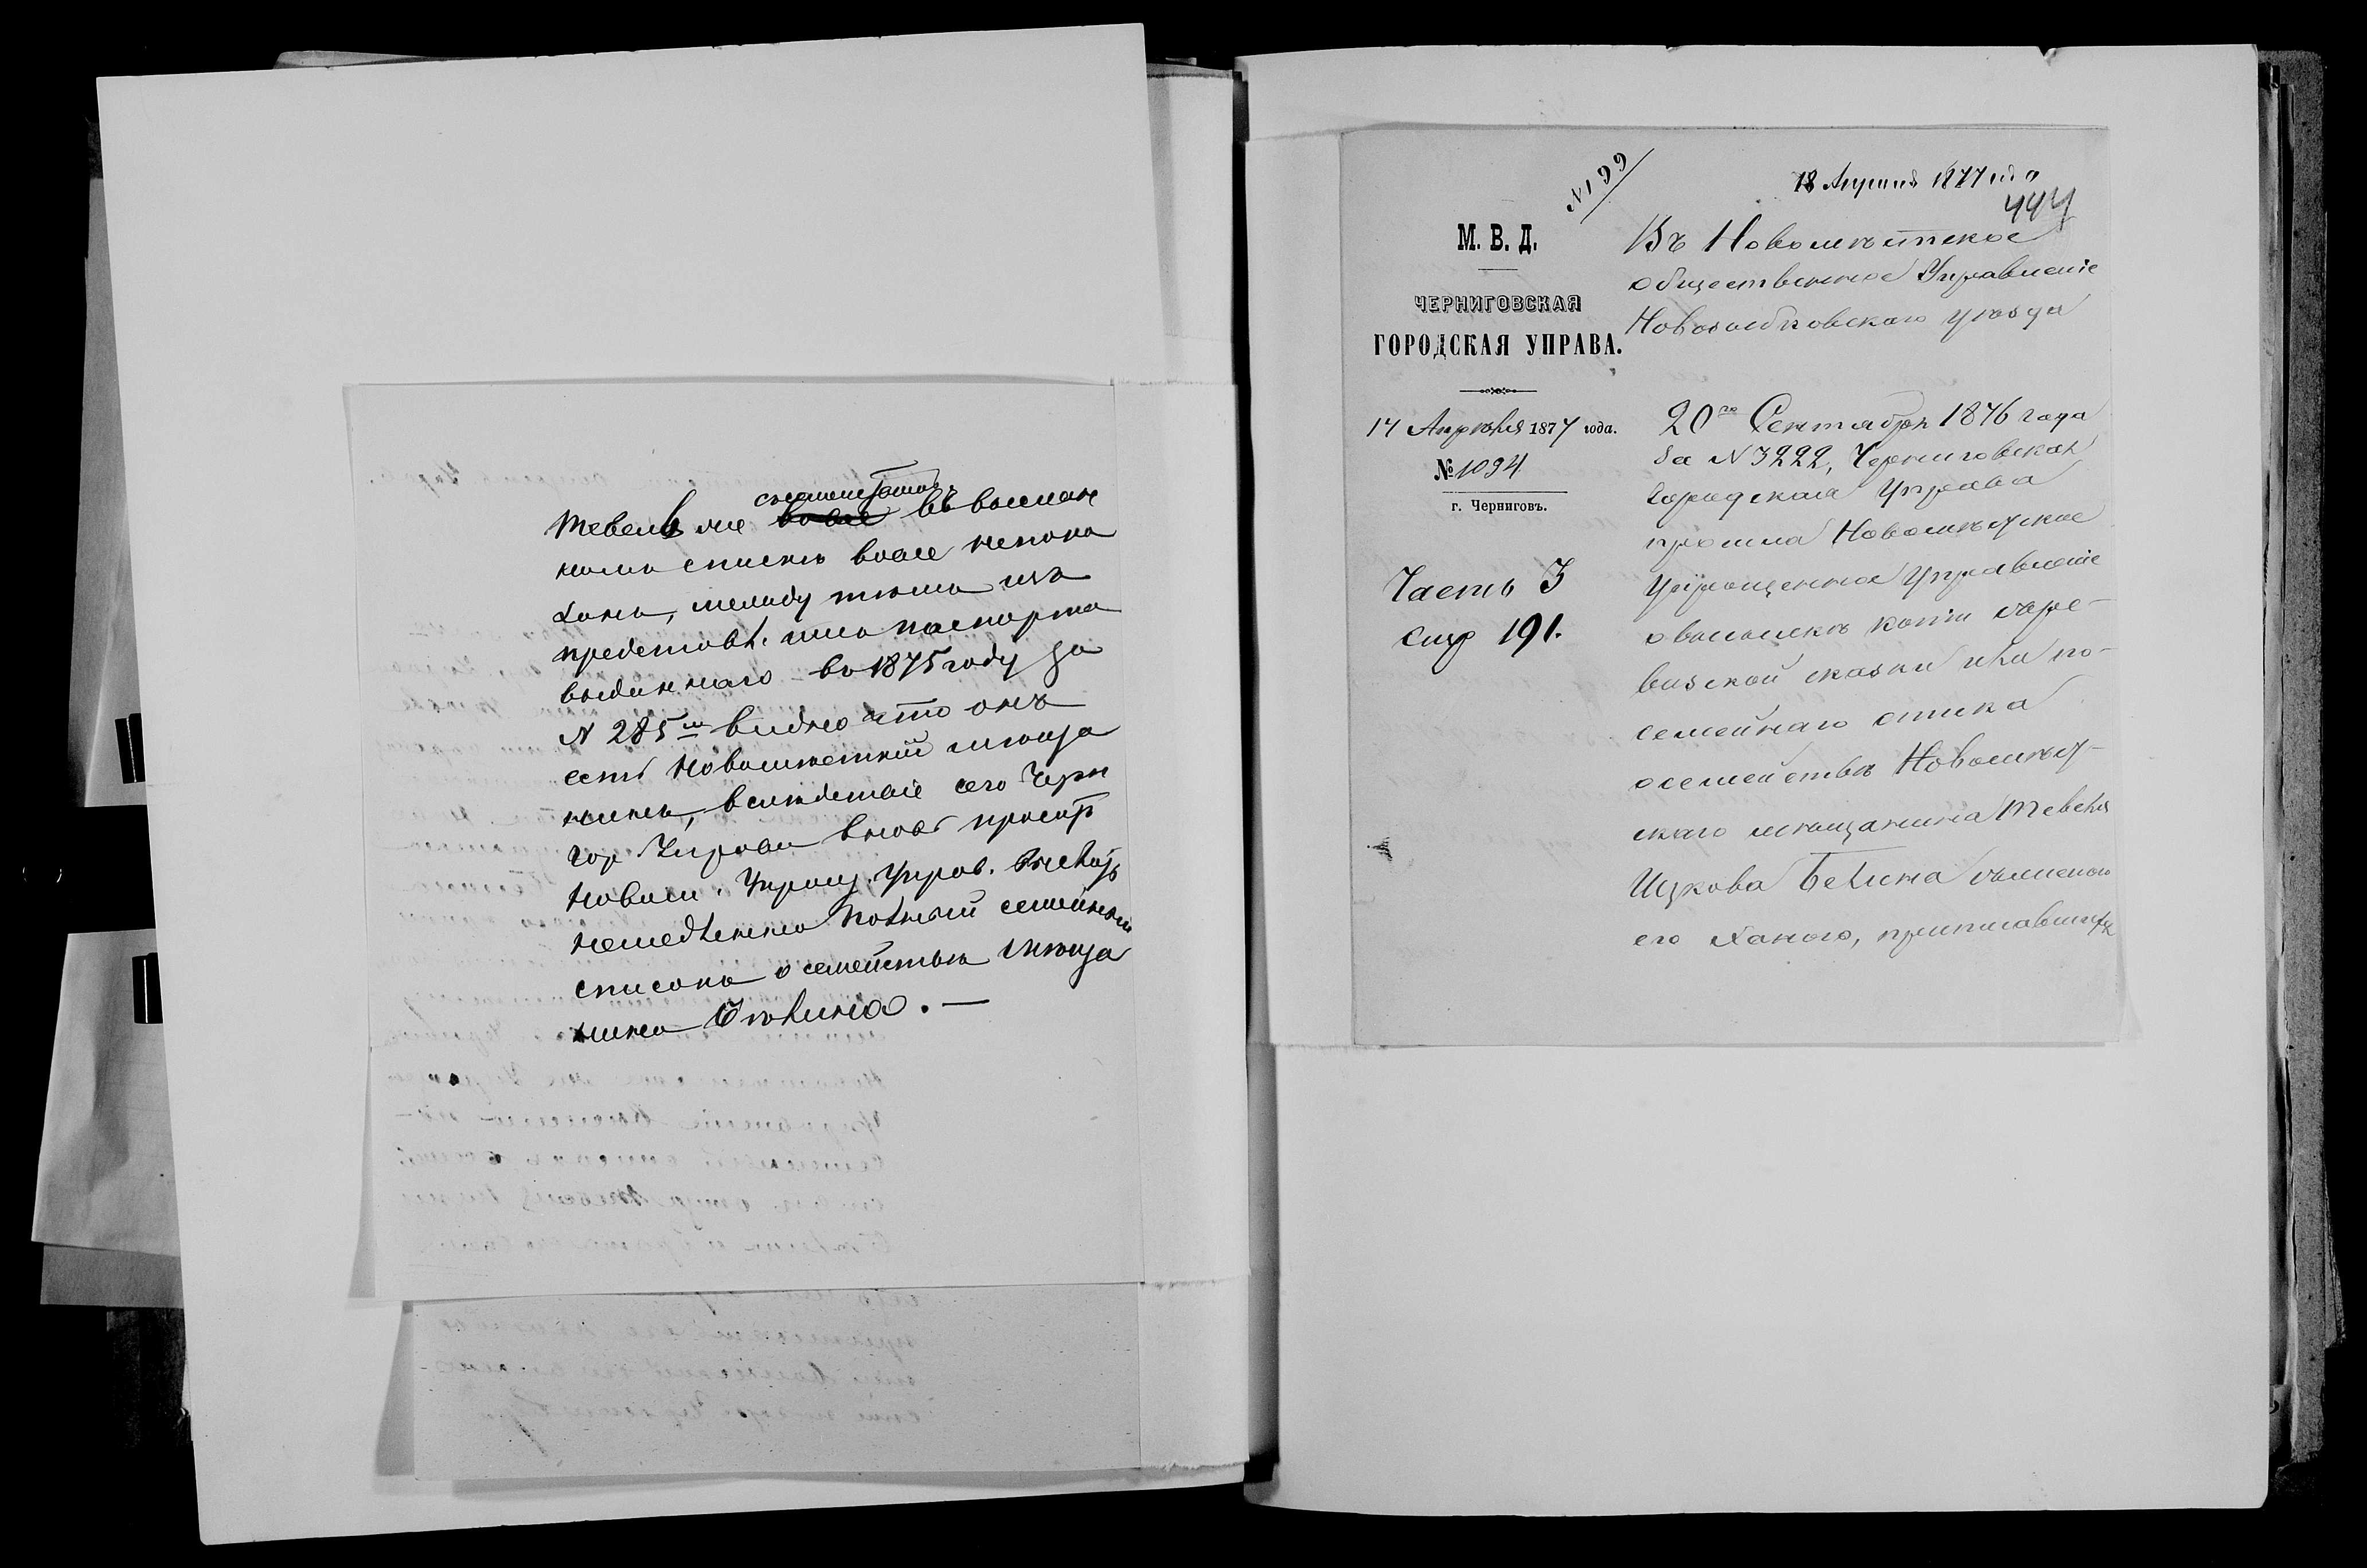 съсемействомъ
Тевель же въ выслан
номъ спискѣ вовсе непока
занъ, между тѣмъ изъ
представл. имъ паспорта
выданнаго въ 1875 году за
N 285 м видно что онъ
есть Новомѣстскій мѣща
нинъ, вслѣдствіе сего Черн
гор Управа вновь проситъ
Новом. Упрощ. Управ. выслать
немедленно полный семейный
списокъ о семействѣ мѣща
нина Бѣлина. —
N 199
18 Апреля 1877 года
444
М. В. Д.
ЧЕРНИГОВСКАЯ
ГОРОДСКАЯ УПРАВА.
14 Апрѣля 1877 года.
№ 1094
г. Черниговъ.
Часть 3
стр 191.
Въ Новомѣстское
общественное Управленіе
Новозыбковскаго уѣзда
20го Сентября 1876 года
за N 3222, Черниговская
Городская Управа
просила Новомѣстское
Упрощенное Управленіе
овысылкѣ копіи съре-
визской сказки или по-
семейнаго списка
осемействѣ Новомѣст-
скаго мѣщанина Тевеля
Ицкова Белина съженою
его Ханою, приписавшихся